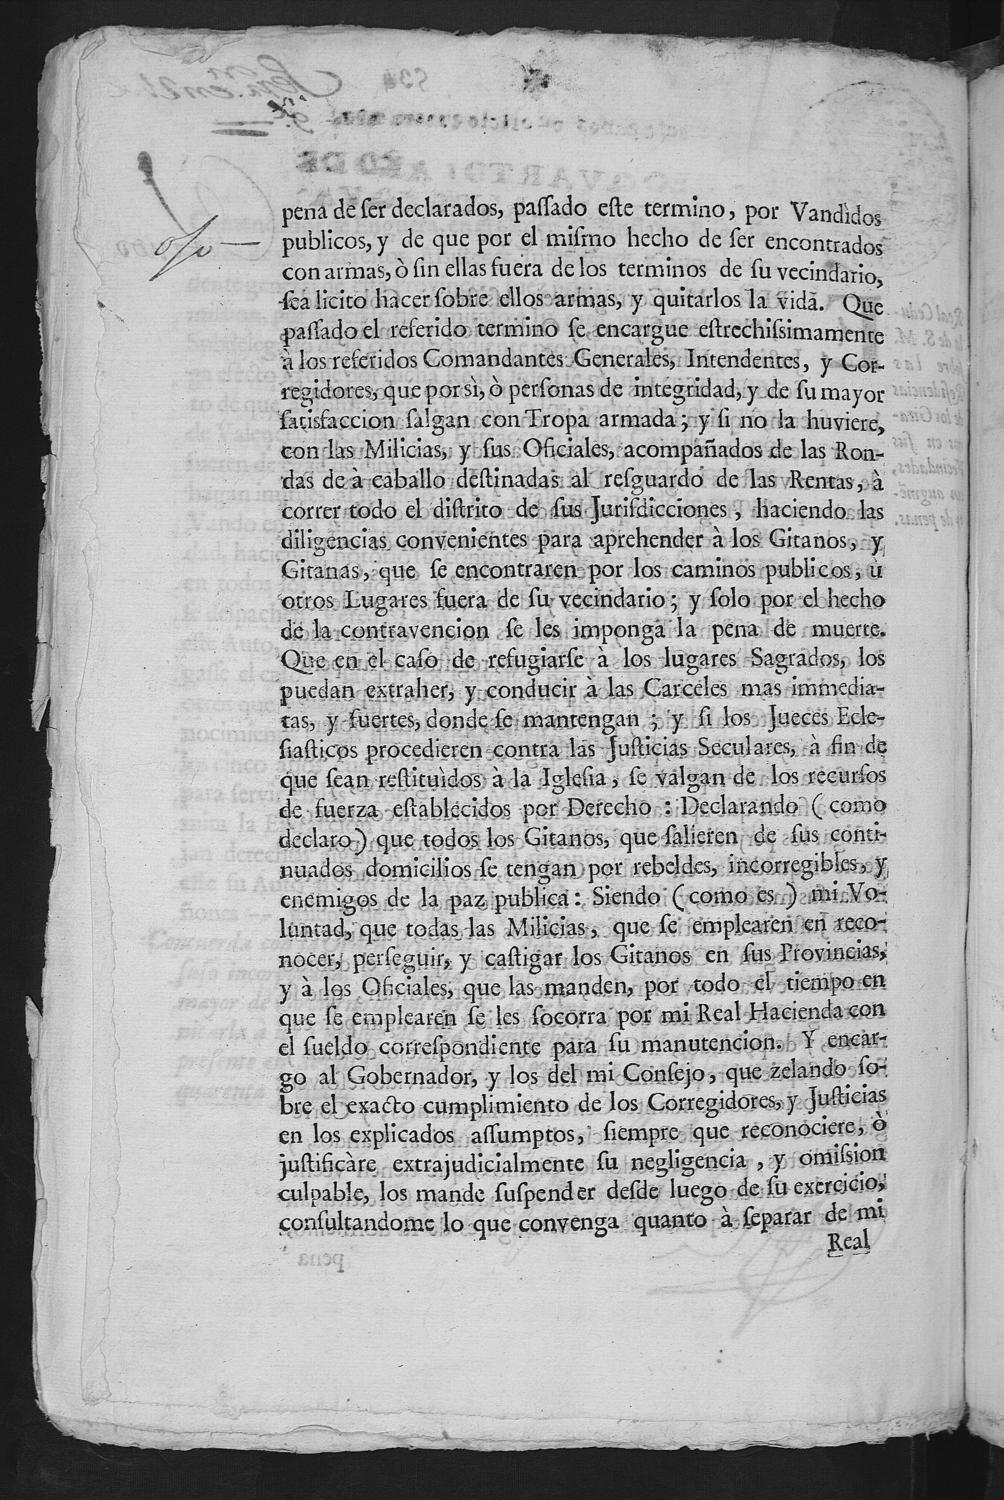 pena de ser declarados, passado este termino, por Vandidos
publicos, y de que por el mismo hecho de ser encontrados
con armas, ò sin ellas fuera de los terminos de su vecindario,
sea licito hacer sobre ellos armas, y quitarlos la vida. Que
passado el referido termino se encargue estrechissimamente
à los referidos Comandantes Generales, Intendentes, y Cor-
regidores, que por sì, ò personas de integridad, y de su mayor
satisfaccion salgan con Tropa armada; y si no la huviere,
con las Milicias, y sus Oficiales, acompañados de las Ron-
das de à caballo destinadas al resguardo de las Rentas, à
correr todo el distrito de sus Jurisdicciones, haciendo las
diligencias convenientes para aprehender à los Gitanos, y
Gitanas, que se encontraren por los caminos publicos, ù
otros Lugares fuera de su vecindario; y solo por el hecho
de la contravencion se les imponga la pena de muerte.
Que en el caso de refugiarse à los lugares Sagrados, los
puedan extraher, y conducir à las Carceles mas immedia-
tas, y fuertes, donde se mantengan; y si los Jueces Ecle-
siasticos procedieren contra las Justicias Seculares, à fin de
que sean restituìdos à la Iglesia, se valgan de los recursos
de fuerza establecidos por Derecho: Declarando (como
declaro) que todos los Gitanos, que salieren de sus conti-
nuados domicilios se tengan por rebeldes, incorregibles, y
enemigos de la paz publica: Siendo (como es) mi Vo-
luntad, que todas las Milicias, que se emplearen en reco-
nocer, perseguir, y castigar los Gitanos en sus Provincias,
y à los Oficiales, que las manden, por todo el tiempo en
que se emplearen se les socorra por mi Real Hacienda con
el sueldo correspondiente para su manutencion. Y encar-
go al Gobernador, y los del mi Consejo, que zelando so-
bre el exacto cumplimiento de los Corregidores, y Justicias
en los explicados assumptos, siempre que reconociere, ò
justificàre extrajudicialmente su negligencia, y omission
culpable, los mande suspender desde luego de su exercicio,
consultandome lo que convenga quanto à separar de mi
Real